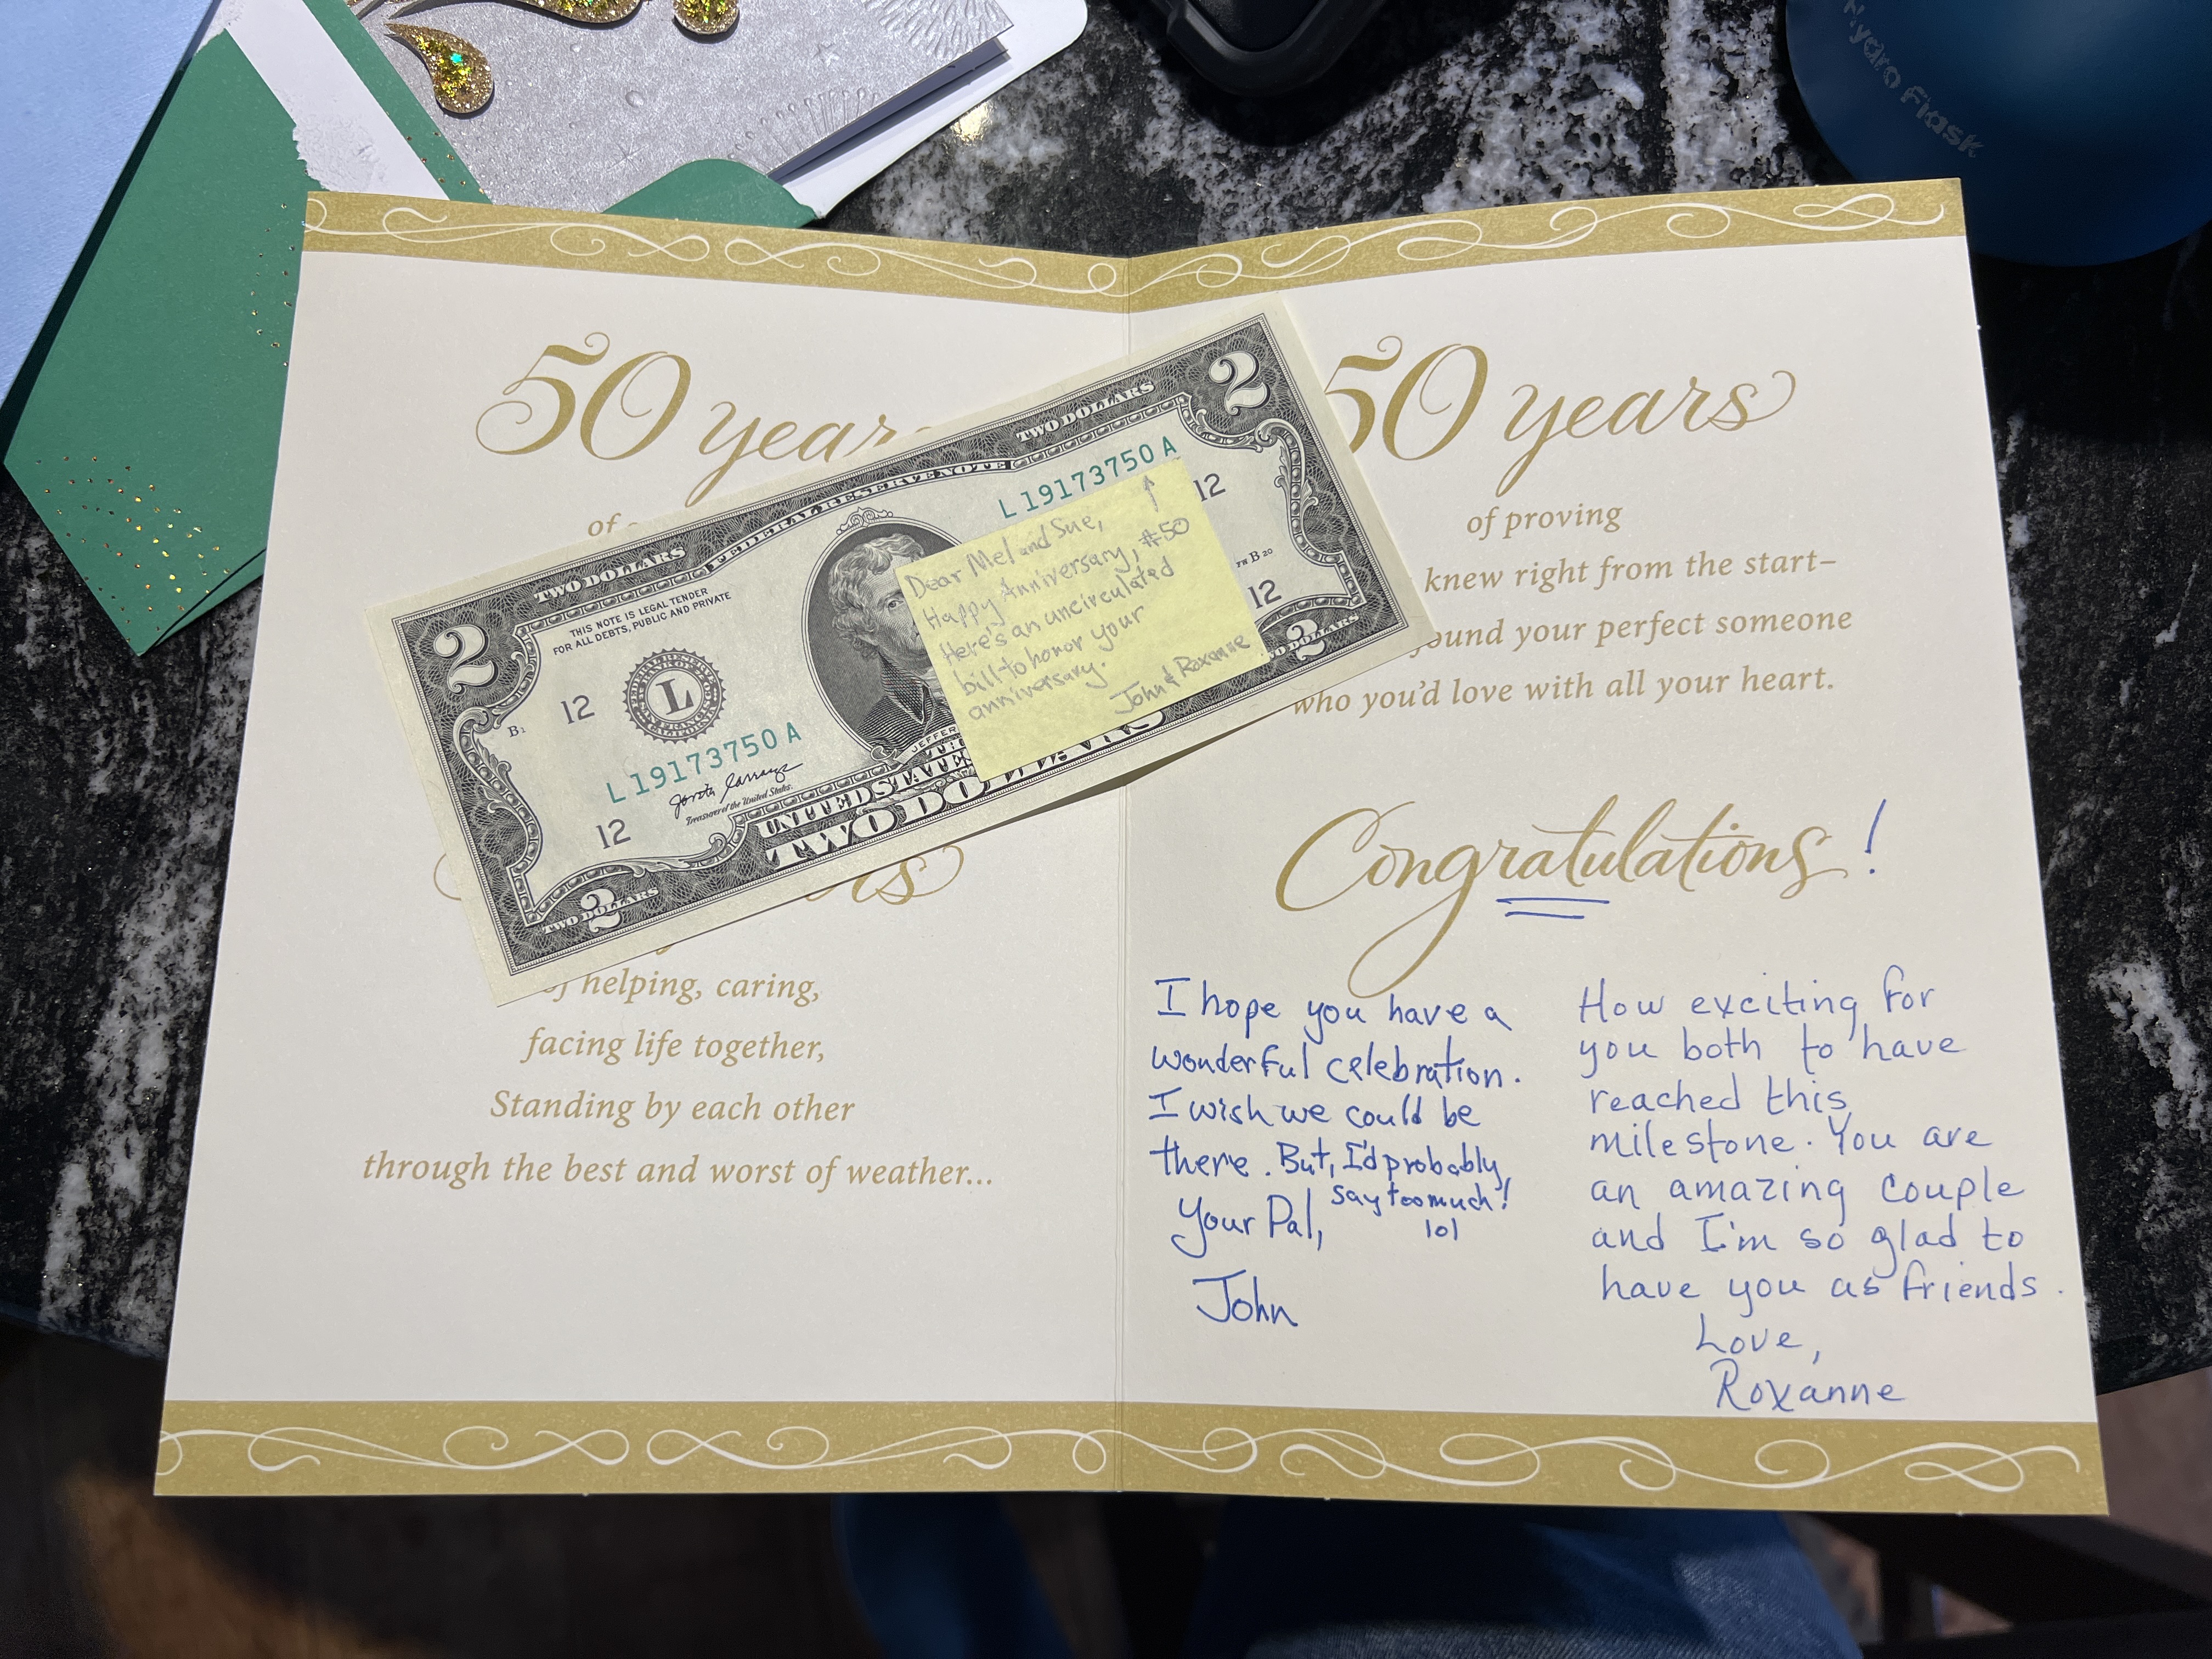 Hydro Flask
50 years
of
helping, caring,
facing life together,
Standing by each other
through the best and worst of weather...
2
TWO DOLLARS
FEDERAL RESERVE NOTE
TWO DOLLARS
2
THIS NOTE IS LEGAL TENDER
FOR ALL DEBTS, PUBLIC AND PRIVATE
L 19173750 A
12
12
B1
L
L 19173750 A
Treasurer of the United States.
12
12
FW B 20
JEFFER
UNITED STATE
TWO DOLLARS
2
TWO DOLLARS
2
DOLLARS
Dear Mel and Sue,
Happy Anniversary, #50
Here's an uncirculated
bill to honor your
anniversary.
John & Roxanne
50 years
of proving
knew right from the start–
found your perfect someone
who you'd love with all your heart.
Congratulations!
I hope you have a
wonderful celebration.
I wish we could be
there. But, I'd probably
say too much!
lol
Your Pal,
John
How exciting for
you both to have
reached this
milestone. You are
an amazing couple
and I'm so glad to
have you as friends.
Love,
Roxanne